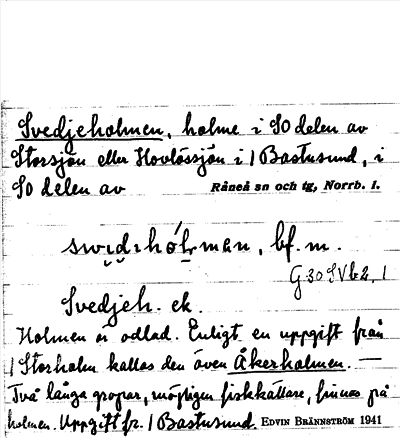 Svedjeholmen, holme i SO delen av
Storsjön eller Hovlössjön i 1 Bastusund, i
SO delen av Råneå sn och tg, Norrb. l.
bf. m.
G 30 SV b 2, 1
Svedjeh. ek.
Holmen är odlad. Enligt en uppgift från
1 Storholm kallas den även Åkerholmen. —
Två långa gropar, möjligen fiskkällare, finnas på
holmen. Uppgift fr. 1 Bastusund. EDVIN BRÄNNSTRÖM 1941